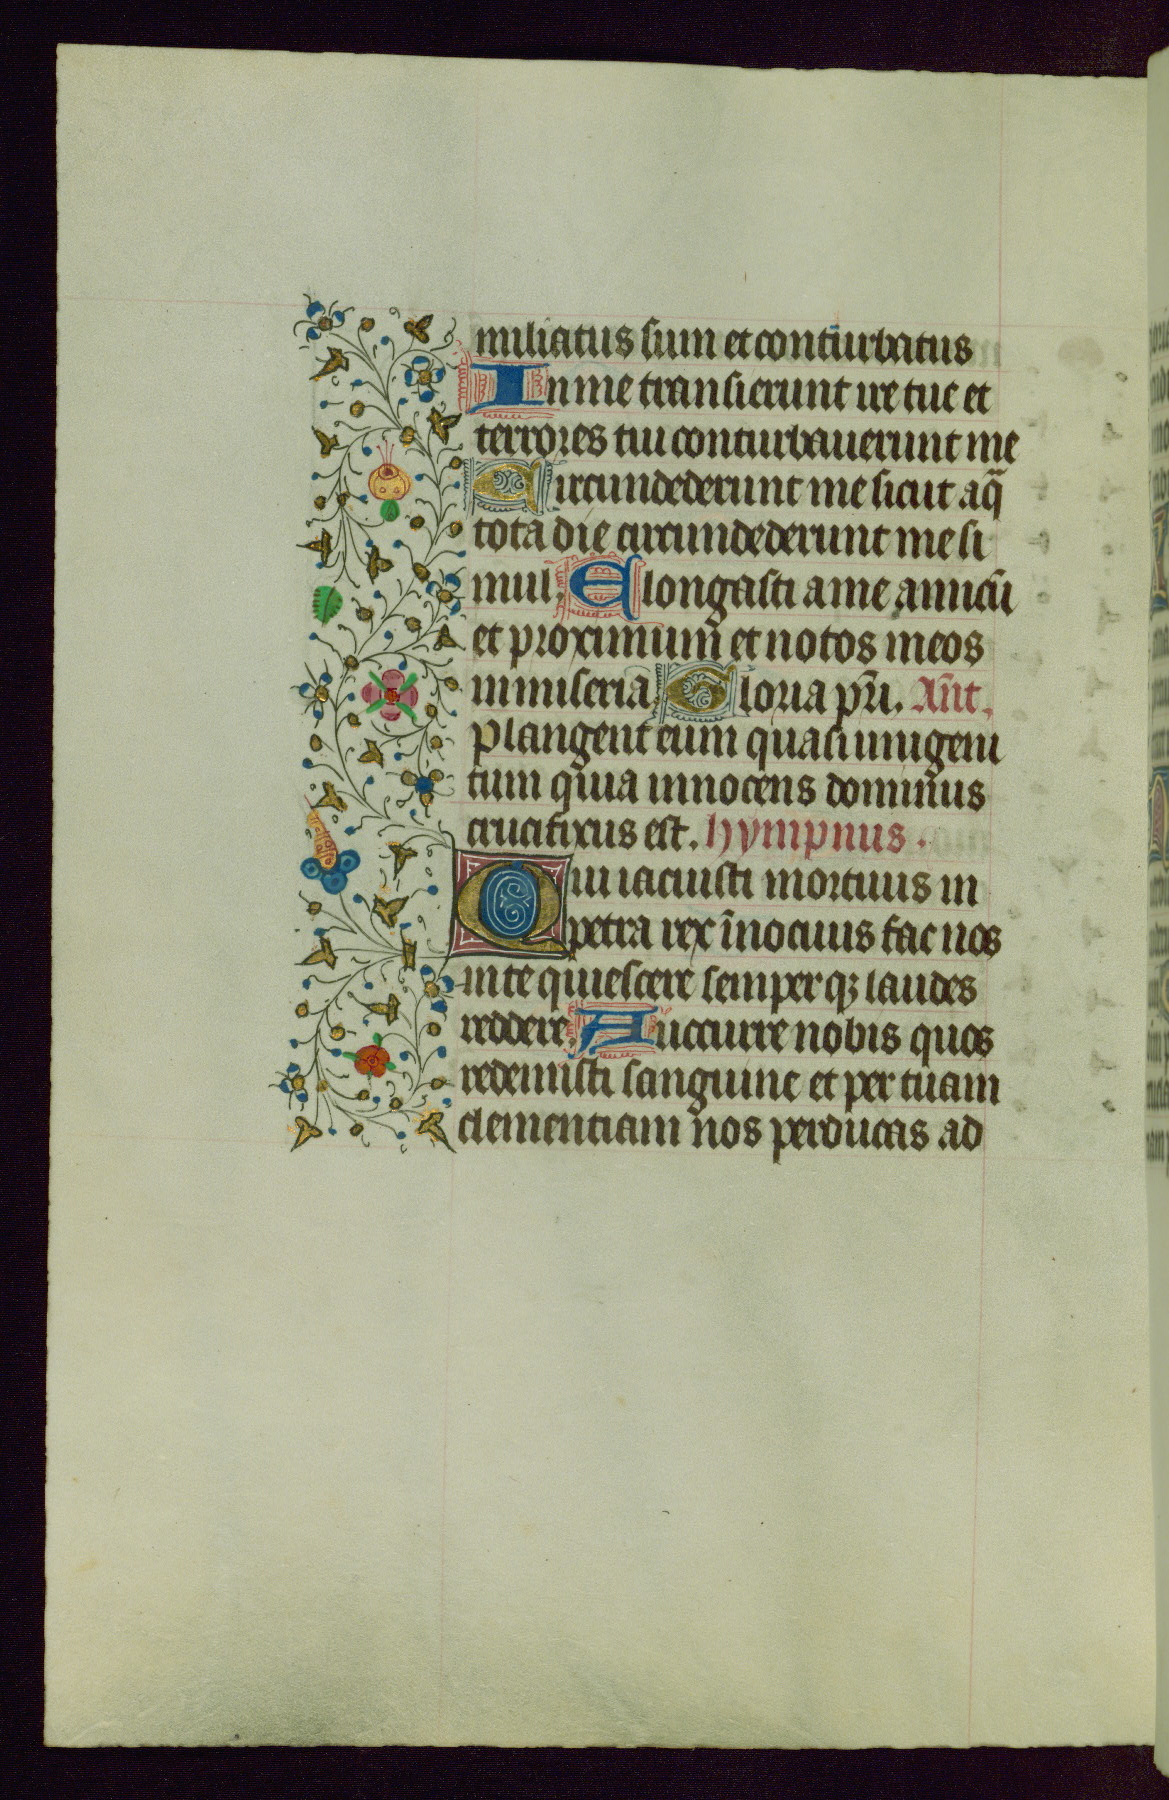 miliatus sum et conturbatus
In me transierunt ire tue et
terrores tui conturbauerunt me
Circundederunt me sicut aq̄
tota die circundederunt me si
mul. Elongasti a me amicū
et proximum et notos meos
a miseria. Gloria pr̄i. Ant̄.
Plangent eum quasi unigeni
tum quia innocens dominus
crucifixus est. hympnus.
Qui iacuisti mortuus in
petra rex īnocuus fac nos
in te quiescere semper qꝫ laudes
reddere. Auccurre nobis quos
redemisti sanguine et per tuam
clementiam nos perducas ad